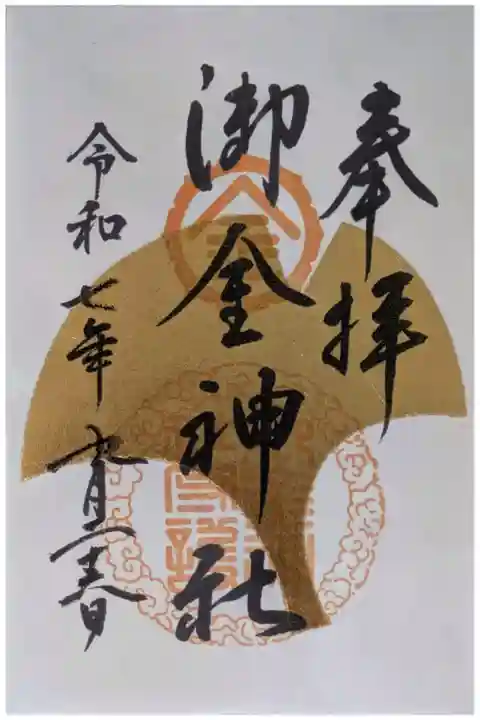 奉拝
御金神社
令和七年